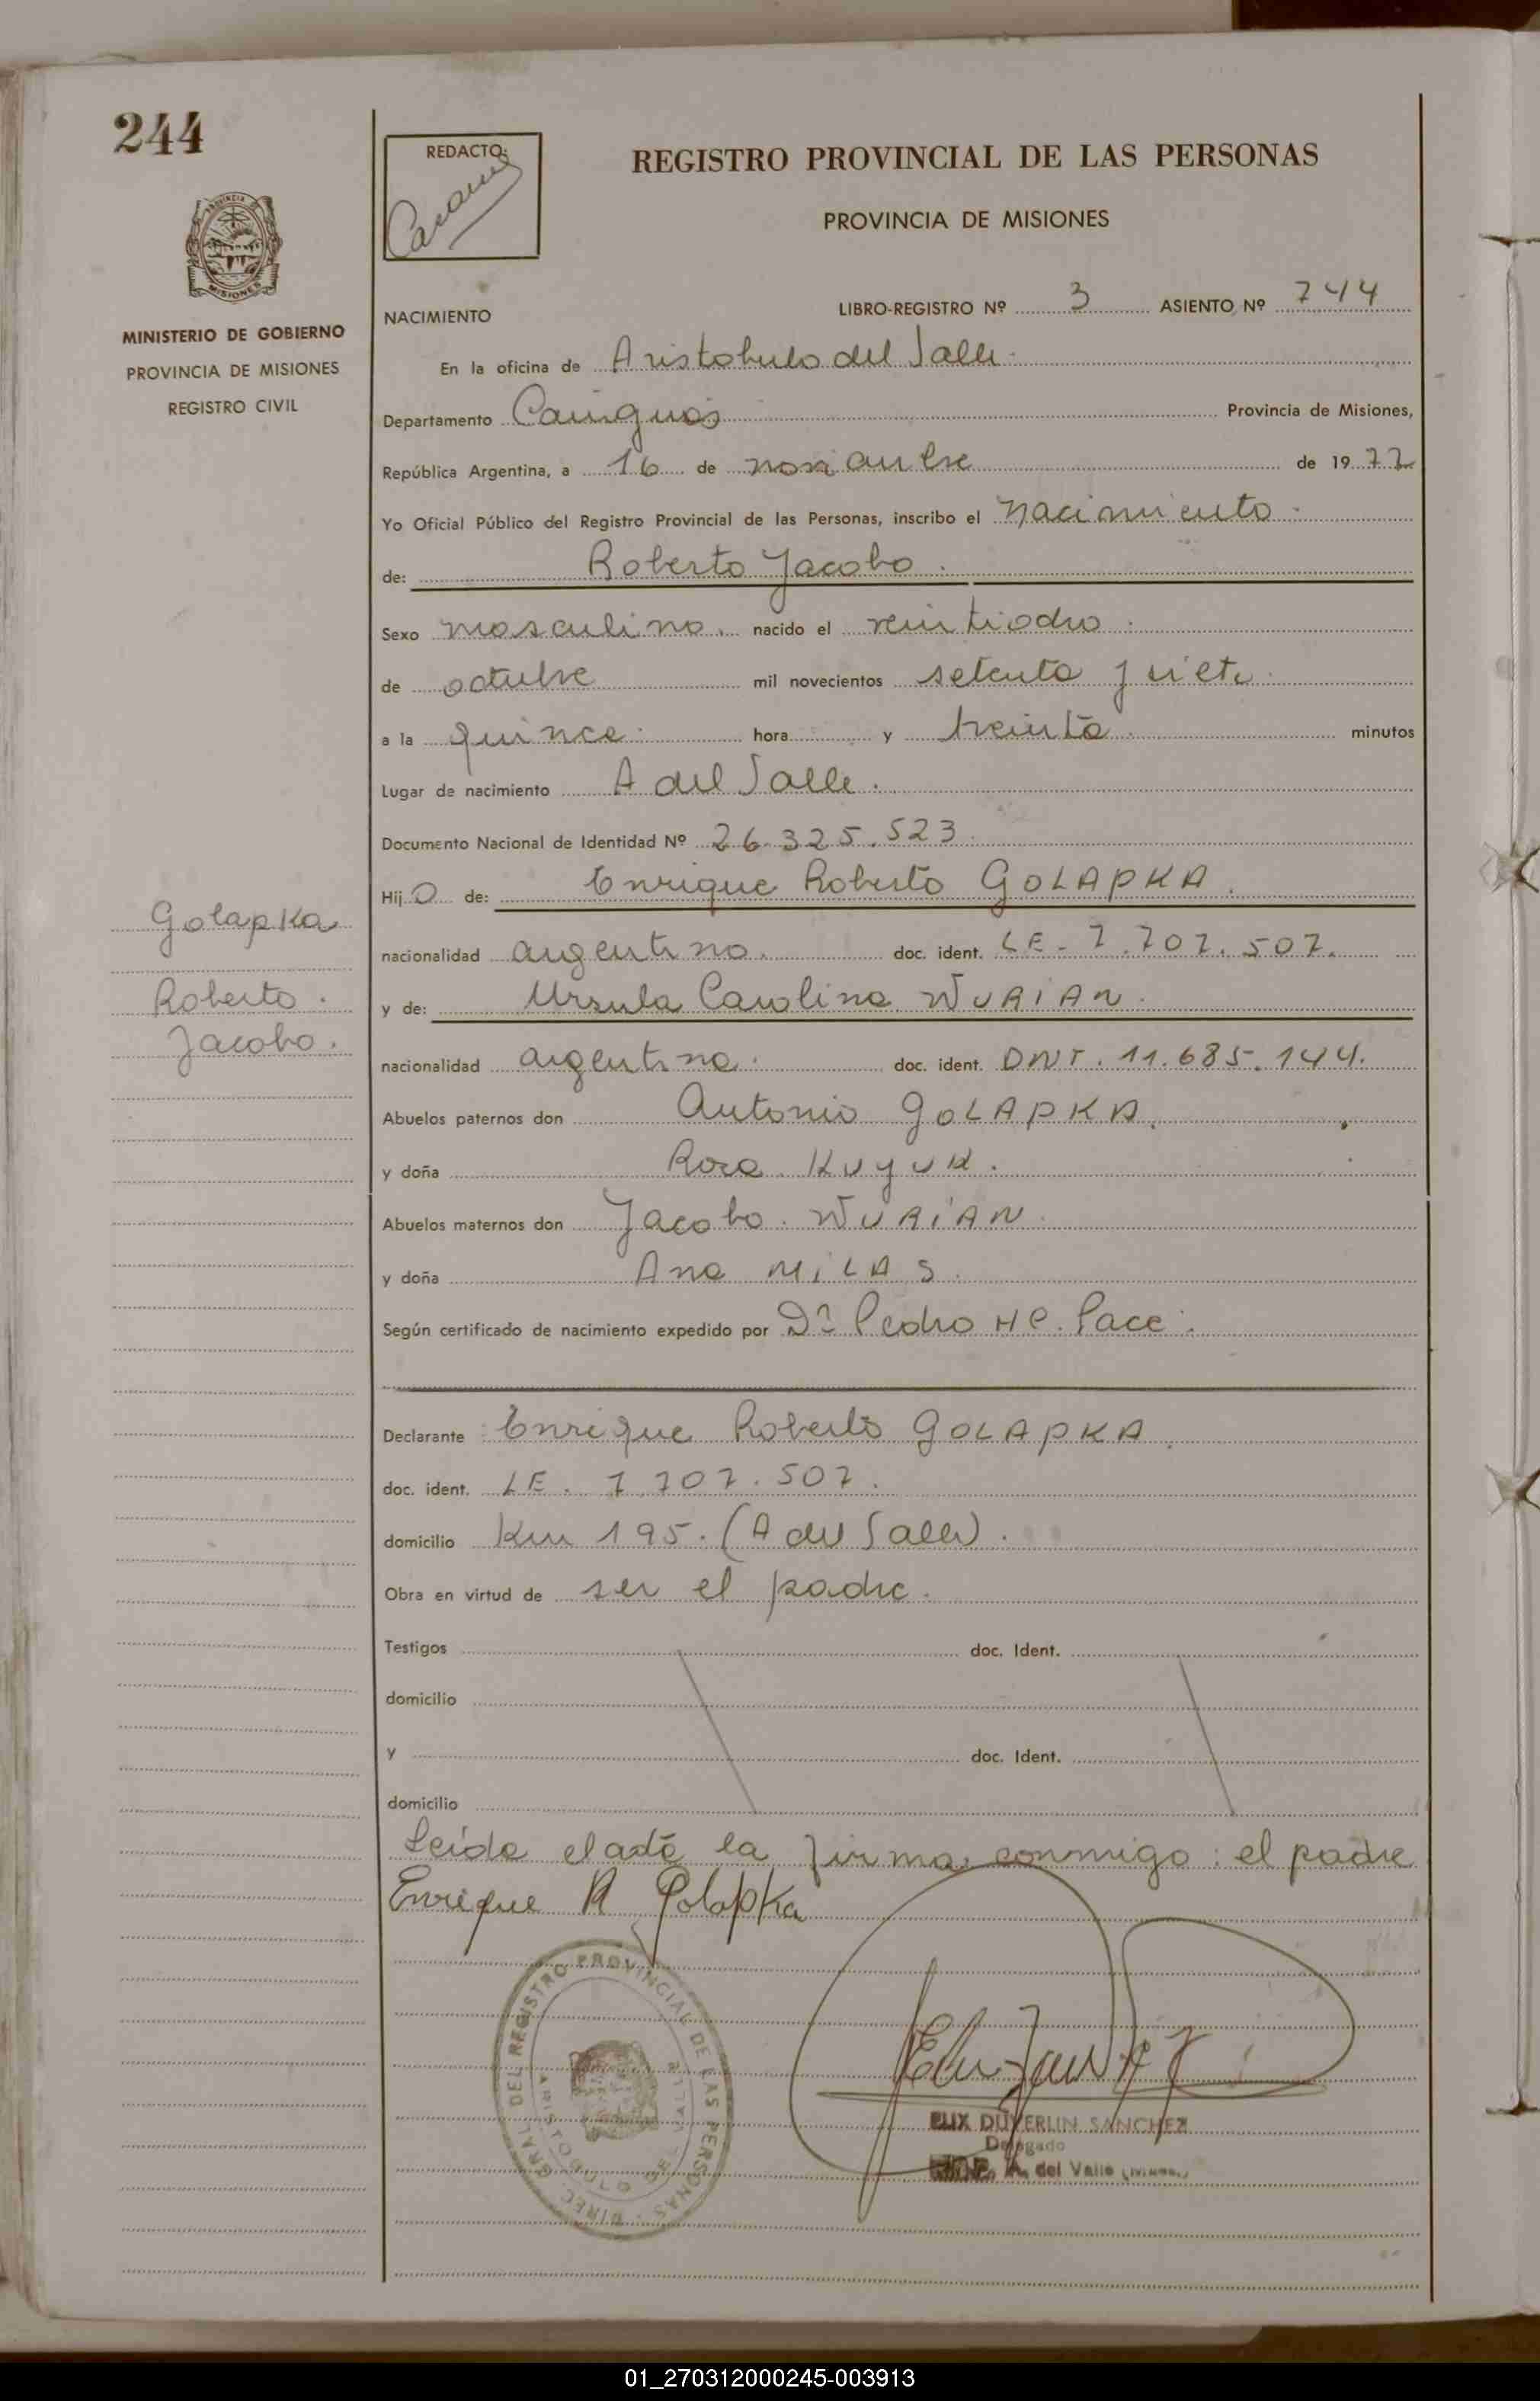 244
REDACTO:
REGISTRO PROVINCIAL DE LAS PERSONAS
PROVINCIA DE MISIONES
MISIONES
MINISTERIO DE GOBIERNO
PROVINCIA DE MISIONES
REGISTRO CIVIL
NACIMIENTO
LIBRO-REGISTRO Nº 3 ASIENTO Nº 744
En la oficina de Aristobulo del Valle
Departamento Cainguas Provincia de Misiones,
República Argentina, a 16 de noviembre de 1977
Yo Oficial Público del Registro Provincial de las Personas, inscribo el Nacimiento
de: Roberto Jacobo.
Sexo masculino. nacido el veintiocho
de octubre mil novecientos setenta y siete
a la quince hora y treinta minutos
Lugar de nacimiento A del Valle.
Documento Nacional de Identidad Nº 26.325.523
Hijo de: Enrique Roberto GOLAPKA.
nacionalidad argentino. doc. ident. LE- 7.707.507.
y de: Ursula Carolina WURIAN.
nacionalidad argentina. doc. ident. DNI. 11.685.144.
Abuelos paternos don Antonio GOLAPKA.
y doña Rosa KUYUK.
Abuelos maternos don Jacobo. WURIAN
y doña Ana MILAS.
Según certificado de nacimiento expedido por Dr Pedro HC. Pace.
Golapka
Roberto.
Jacobo.
Declarante Enrique Roberto GOLAPKA.
doc. ident. LE. 7.707.507.
domicilio Km 195. (A del Valle).
Obra en virtud de ser el padre.
Testigos doc. Ident.
domicilio
y doc. Ident.
domicilio
Leída el acta la firma conmigo: el padre
Enrique R Golapka
DIREC. GRAL. DEL REGISTRO PROVINCIAL DE LAS PERSONAS
ARISTOBULO DEL VALLE
ELIX DUVERLIN SANCHEZ
Delegado
A. del Valle
01_270312000245-003913